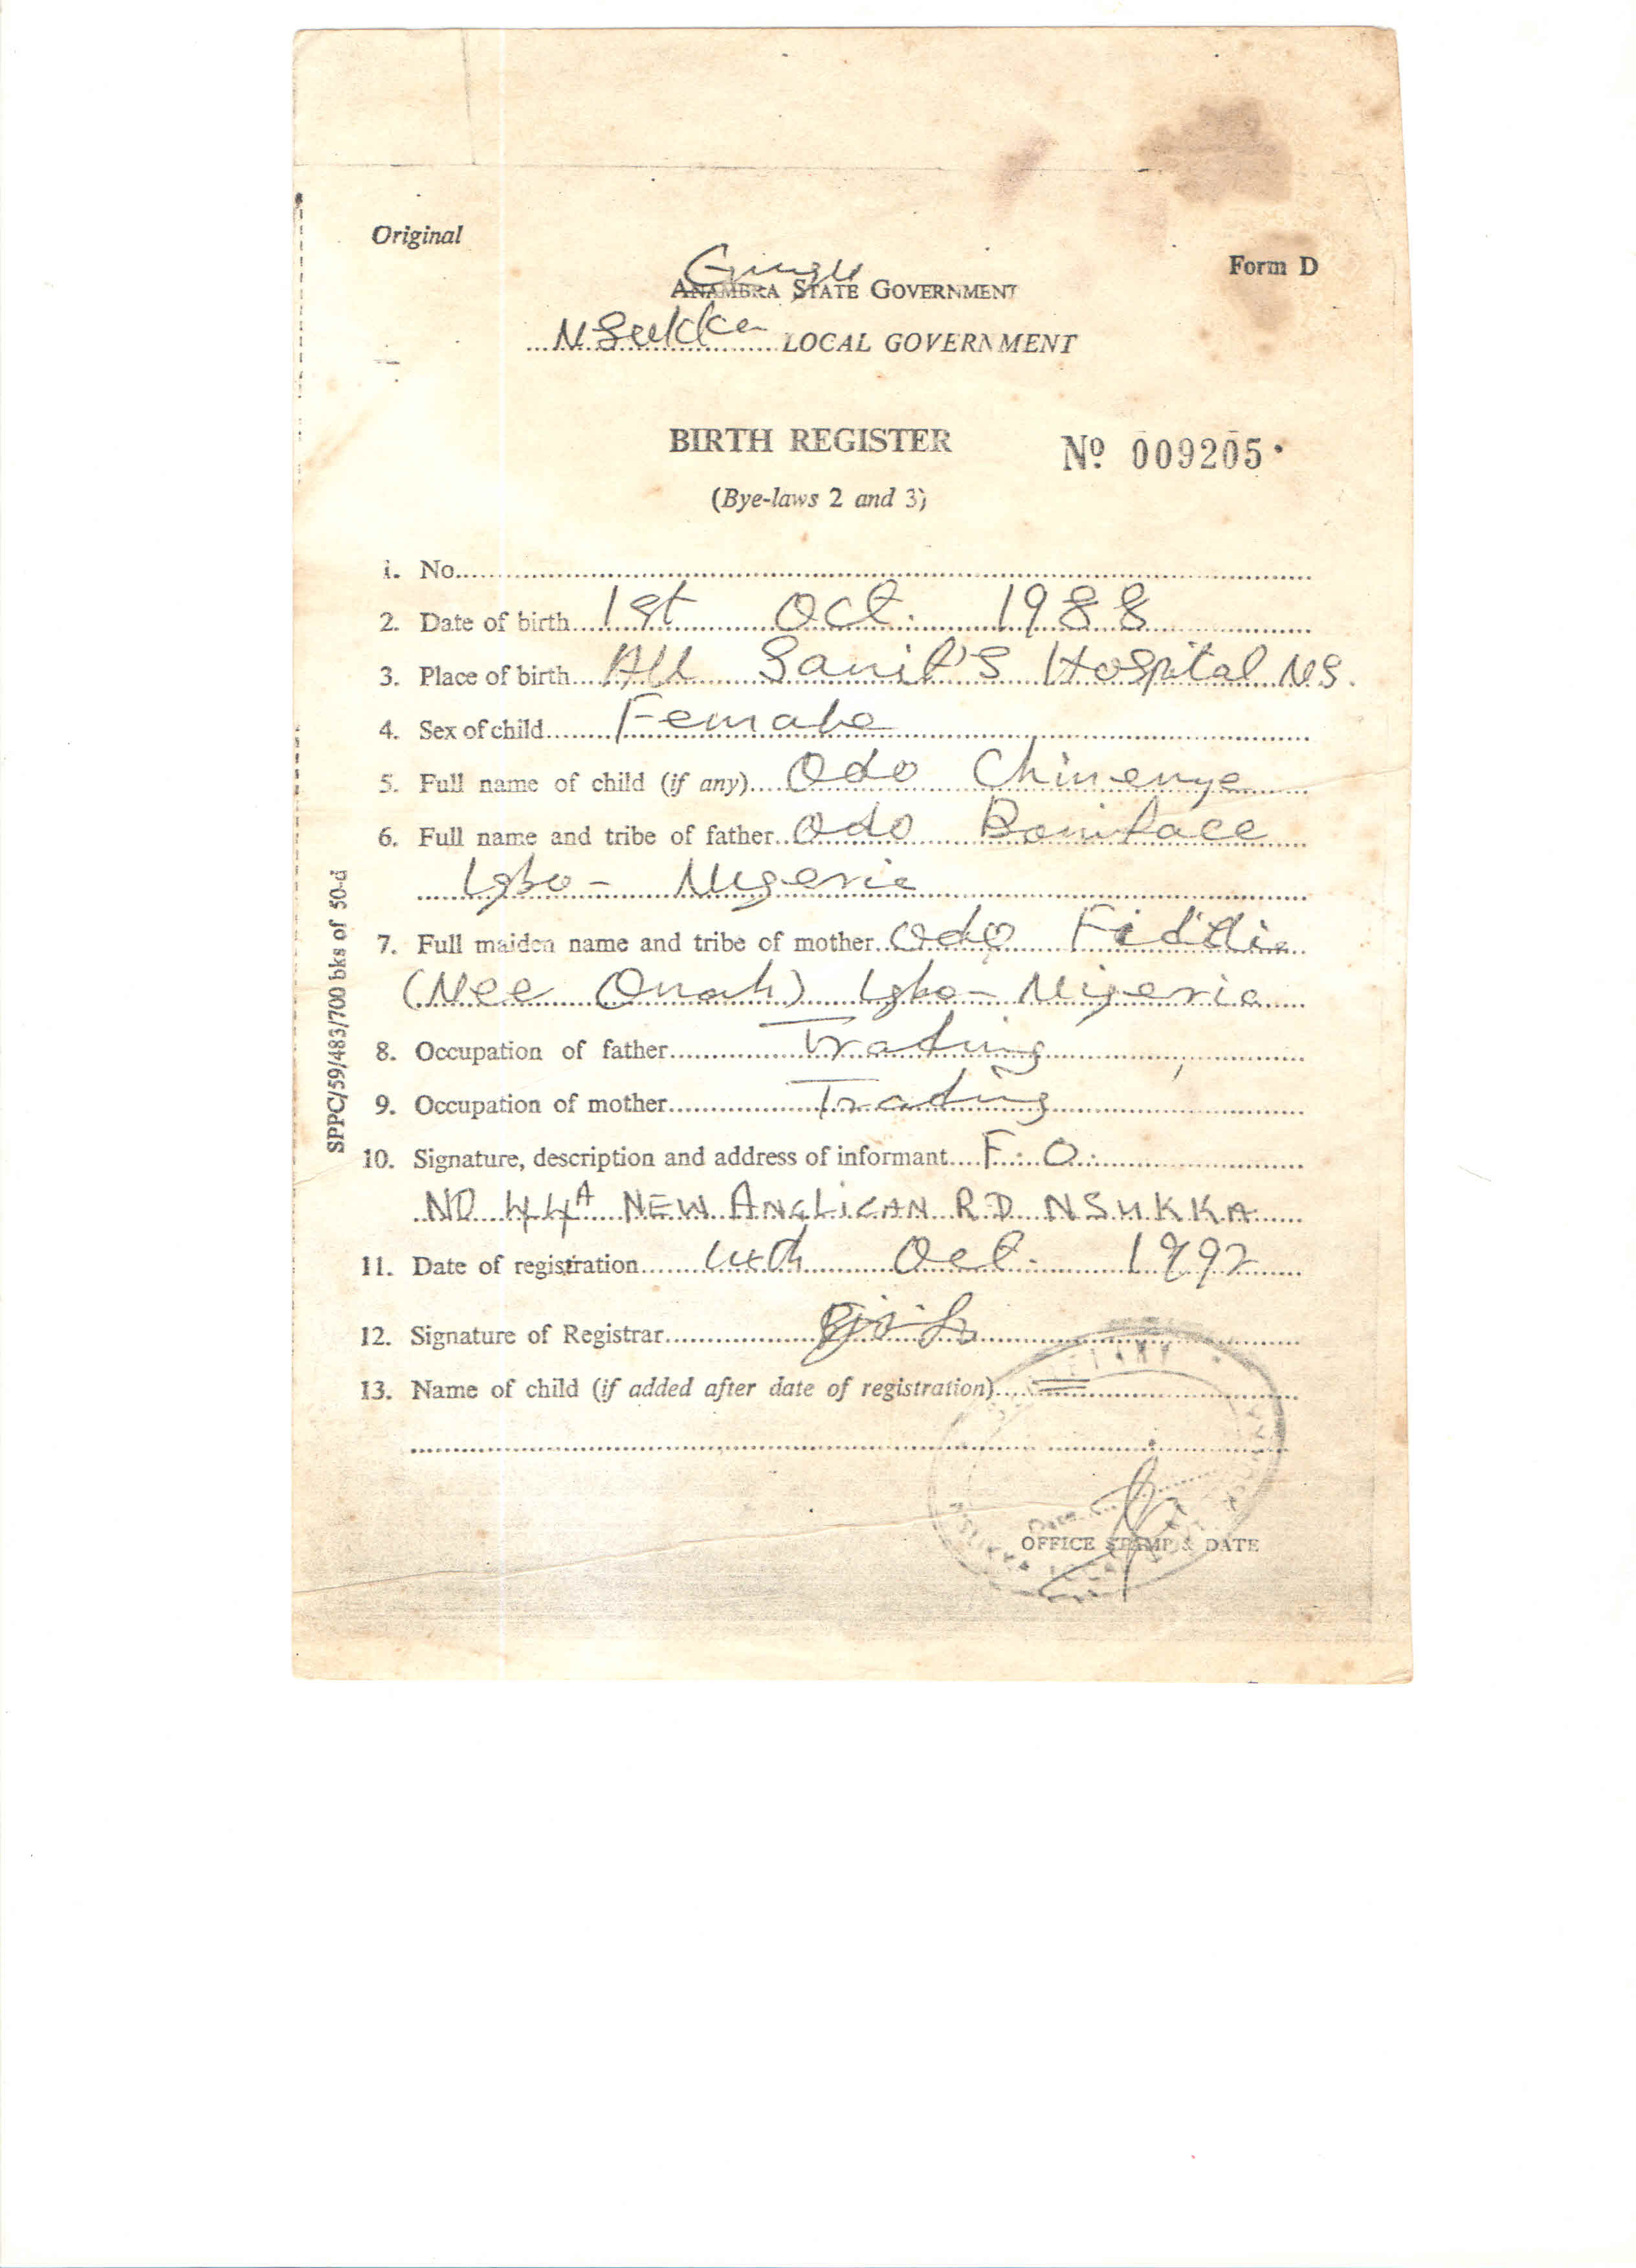 Original
Form D
Enugu
ANAMBRA STATE GOVERNMENT
Nsukka LOCAL GOVERNMENT
BIRTH REGISTER
No 009205
(Bye-laws 2 and 3)
1. No.
2. Date of birth 1st Oct. 1988
3. Place of birth All Saint's Hospital NS.
4. Sex of child Female
5. Full name of child (if any) Odo Chinenye
6. Full name and tribe of father Odo Boniface
Igbo - Nigeria
7. Full maiden name and tribe of mother Odo
(Nee Onah) Igbo - Nigeria
8. Occupation of father Trading
9. Occupation of mother Trading
10. Signature, description and address of informant F. O.
NO 44A NEW ANGLICAN RD NSUKKA
11. Date of registration Oct. 1992
12. Signature of Registrar
13. Name of child (if added after date of registration)
OFFICE STAMP & DATE
SPPC/59/483/700 bks of 50-d